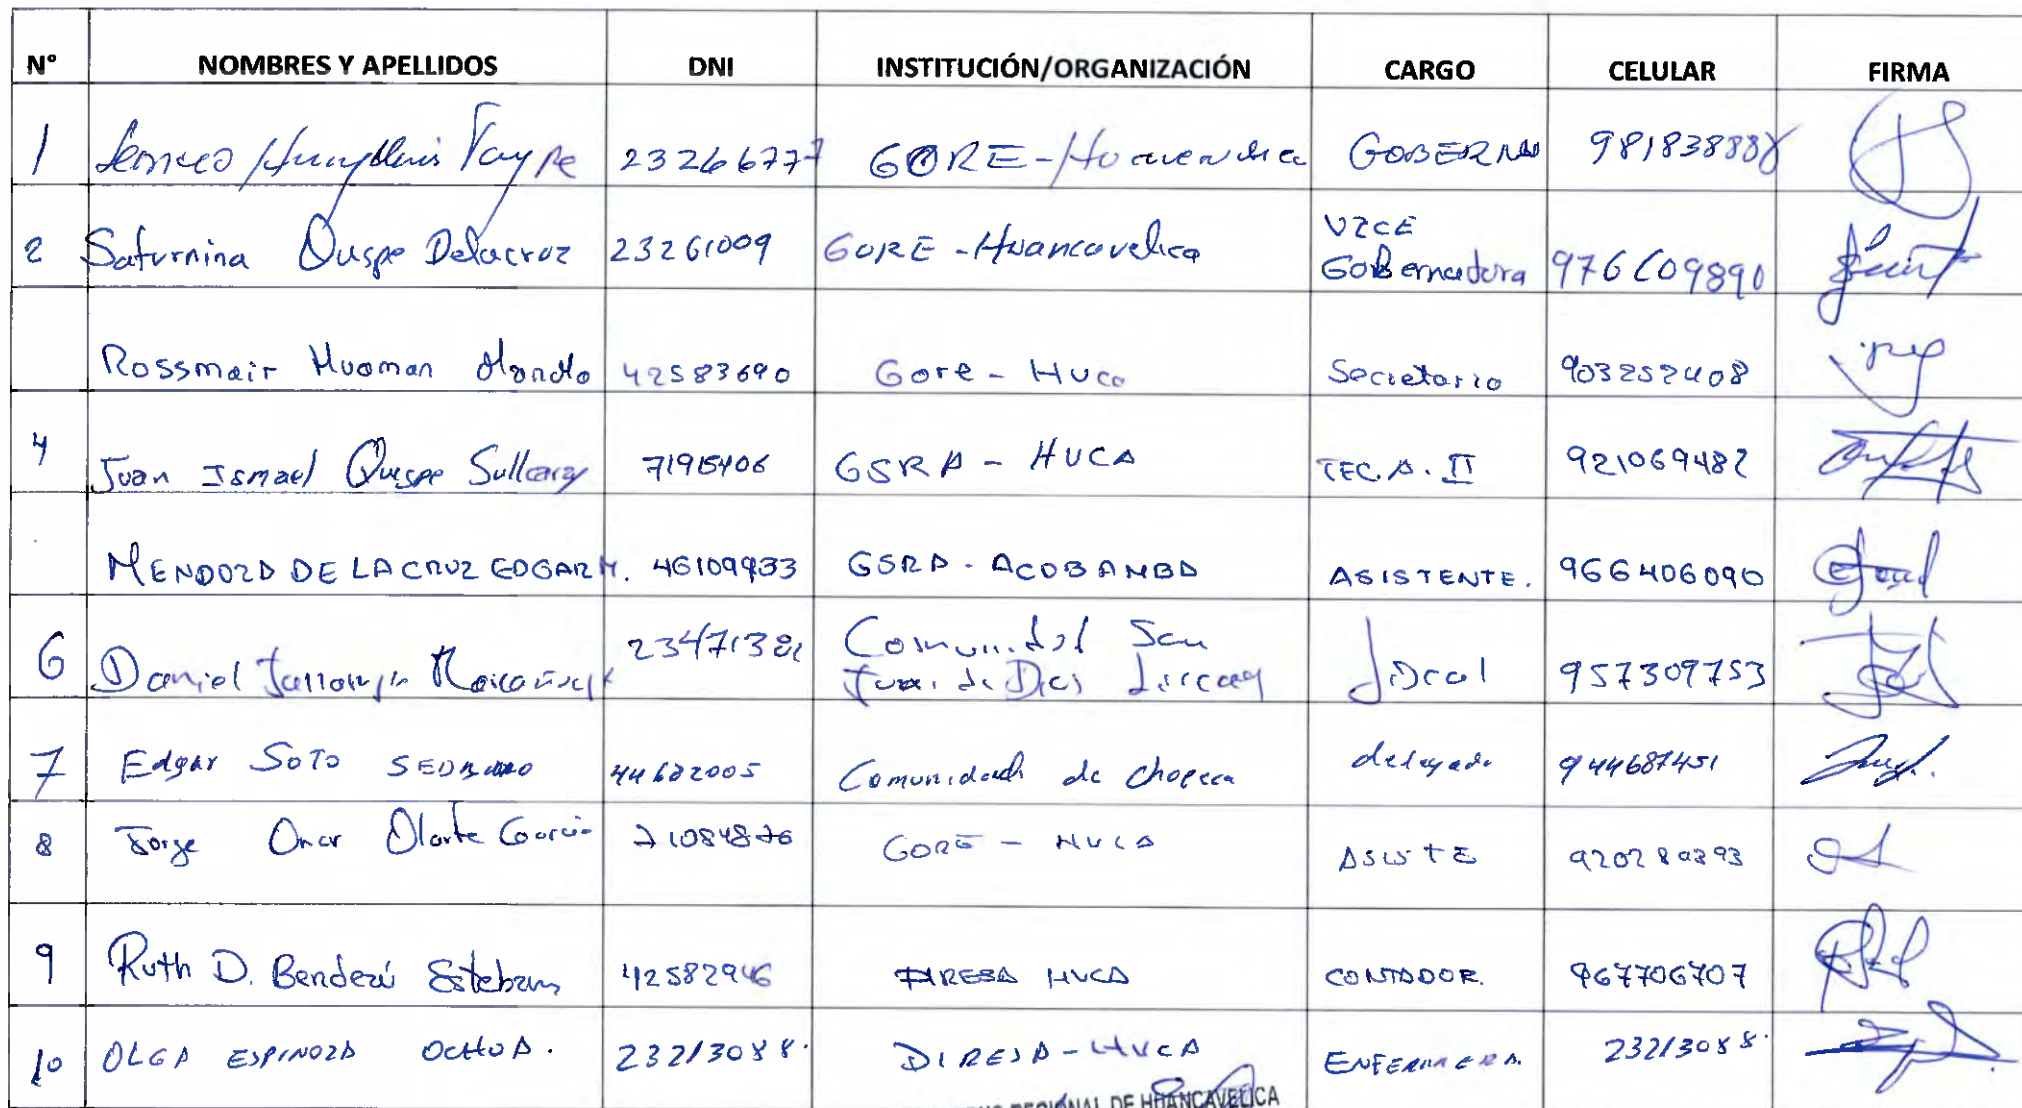 N° NOMBRES Y APELLIDOS DNI INSTITUCIÓN/ORGANIZACIÓN CARGO CELULAR FIRMA
1 23266777 GORE - GOBERN 981838888
2 Saturnina Quspe Delacruz 23261009 GORE - Huancavelica VICE Gobernadora 976609890
Rossmair Huaman 42583690 Gore - Huca Secretario 903252408
4 Juan Ismael Quspe Sullcaray 71915406 GSRA - HUCA TEC. A. II 921069482
MENDOZA DE LA CRUZ EDGAR M. 46109933 GSRA - ACOBAMBA ASISTENTE. 966406090
6 Daniel Comunidad San Juan de Dios Lircay 957309753
7 Edgar SOTO 44682005 Comunidad de chopcca delegado 944687451
8 Jorge Omar Olarte Garcia 71084876 GORE - HVCA ASISTE 920280393
9 Ruth D. Bendezú Esteban 42582946 DIRESA HVCA CONTADOR. 967706707
10 OLGA ESPINOZA OCHOA. 23213088. DIRESA - HVCA ENFERMERA. 23213088.
REGIONAL DE HUANCAVELICA